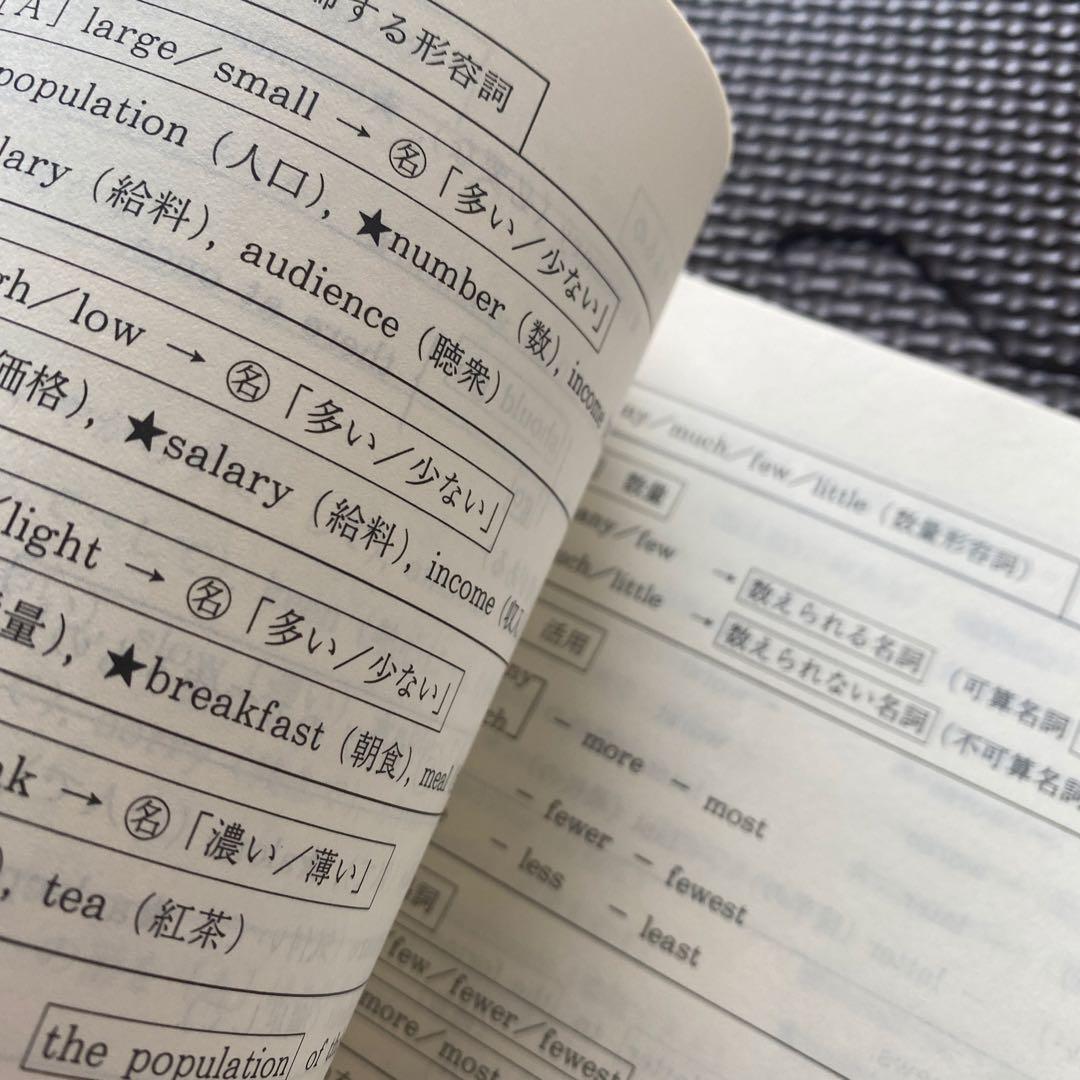 する形容詞
[A] large／small → ㊔「多い／少ない」
population（人口）, ★number（数）, income
（給料）, audience（聴衆）
／low → ㊔「多い／少ない」
価格）, ★salary（給料）, income
／light → ㊔「多い／少ない」
量）, ★breakfast（朝食）, meal
→ ㊔「濃い／薄い」
, tea（紅茶）
the population of
／much／few／little（数量形容詞）
数量
／few → 数えられる名詞（可算名詞
／little → 数えられない名詞（不可算名詞
活用
－ more － most
－ fewer － fewest
－ less － least
詞
few／fewer／fewest
more／most